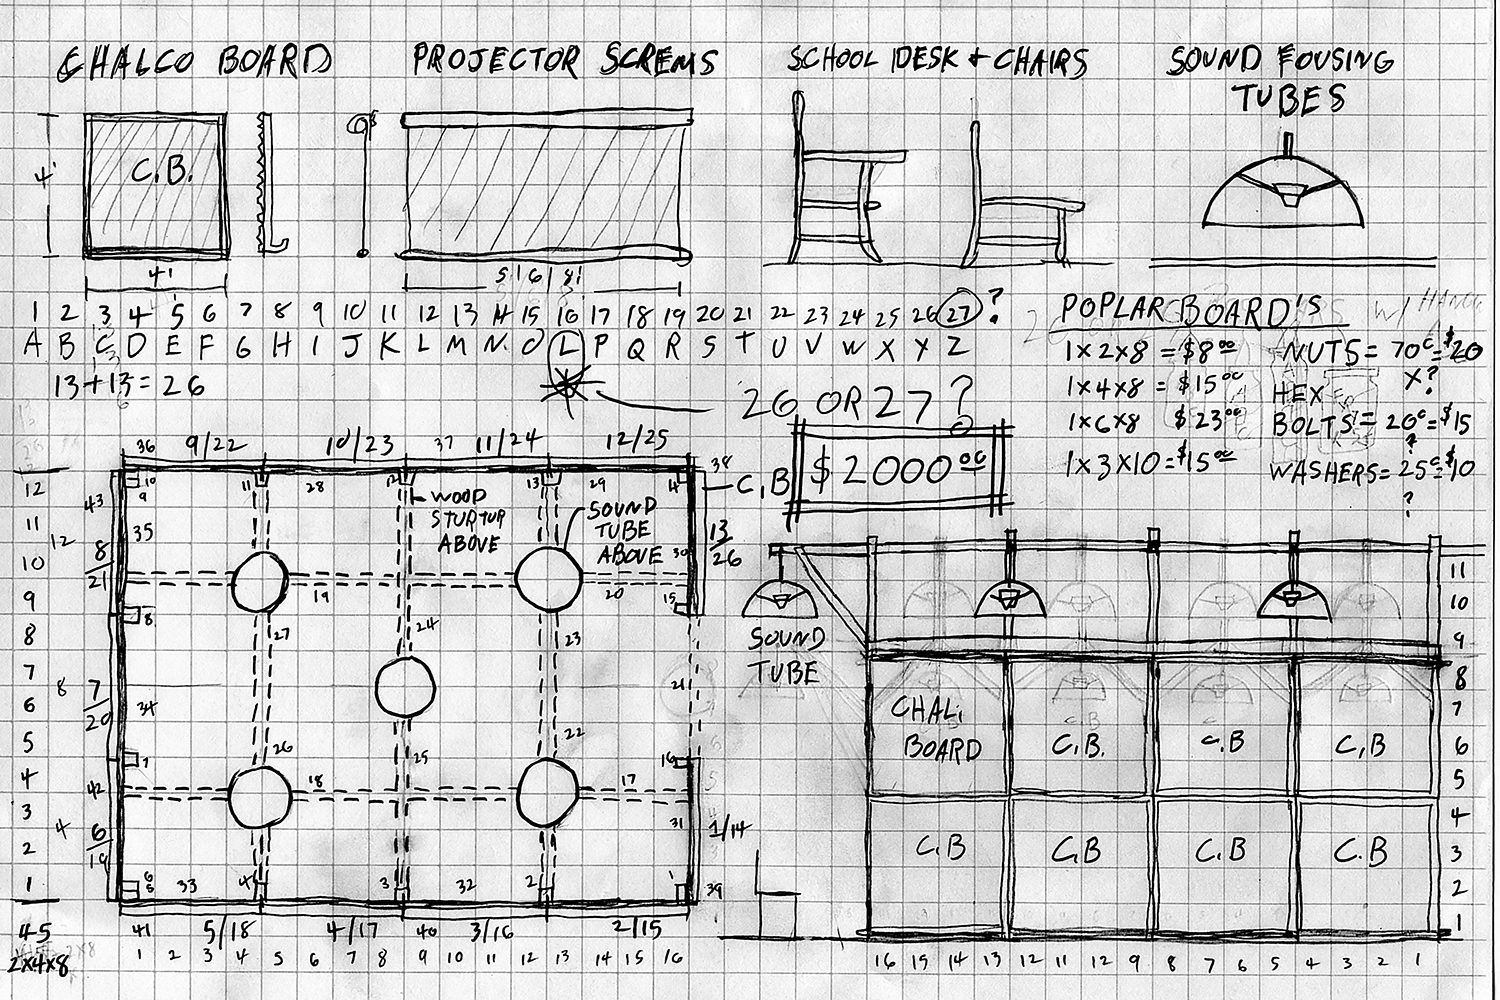 CHALCO BOARD
PROJECTOR SCREMS
SCHOOL DESK + CHAIRS
SOUND FOUSING
TUBES
4'
C.B.
4'
5'/6'/8'
1 2 3 4 5 6 7 8 9 10 11 12 13 14 15 16 17 18 19 20 21 22 23 24 25 26 27 ?
A B C D E F G H I J K L M N O L P Q R S T U V W X Y Z
13+13=26
26 OR 27?
$2000.00
POPLAR BOARD'S
1x2x8 = $8.00
1x4x8 = $15.00
1x6x8 $23.00
1x3x10 = $15.00
NUTS = 70¢ = $20
X?
HEX
BOLTS = 20¢ = $15
?
WASHERS = 25¢ = $10
?
36 9/22 10/23 37 11/24 12/25
38
C.B
12 11 10 9 8 7 6 5 4 3 2 1
43 12 8 4 42
8/21
7/20
6/19
10 9 11 28 12 13 29 14
35
WOOD
STURTUP
ABOVE
SOUND
TUBE
ABOVE
13/26
30
19 20 15
8
27 24 23
34 21
26 25 22
7 16
18 17
31
1/14
6 5 33 4 3 32 2 1 39
45
2x4x8
41 5/18 4/17 40 3/16 2/15
1 2 3 4 5 6 7 8 9 10 11 12 13 14 15 16
SOUND
TUBE
CHAL.
BOARD
C.B.
C.B
C.B
C.B
C.B
C.B
C.B
11 10 9 8 7 6 5 4 3 2 1
16 15 14 13 12 11 12 9 8 7 6 5 4 3 2 1